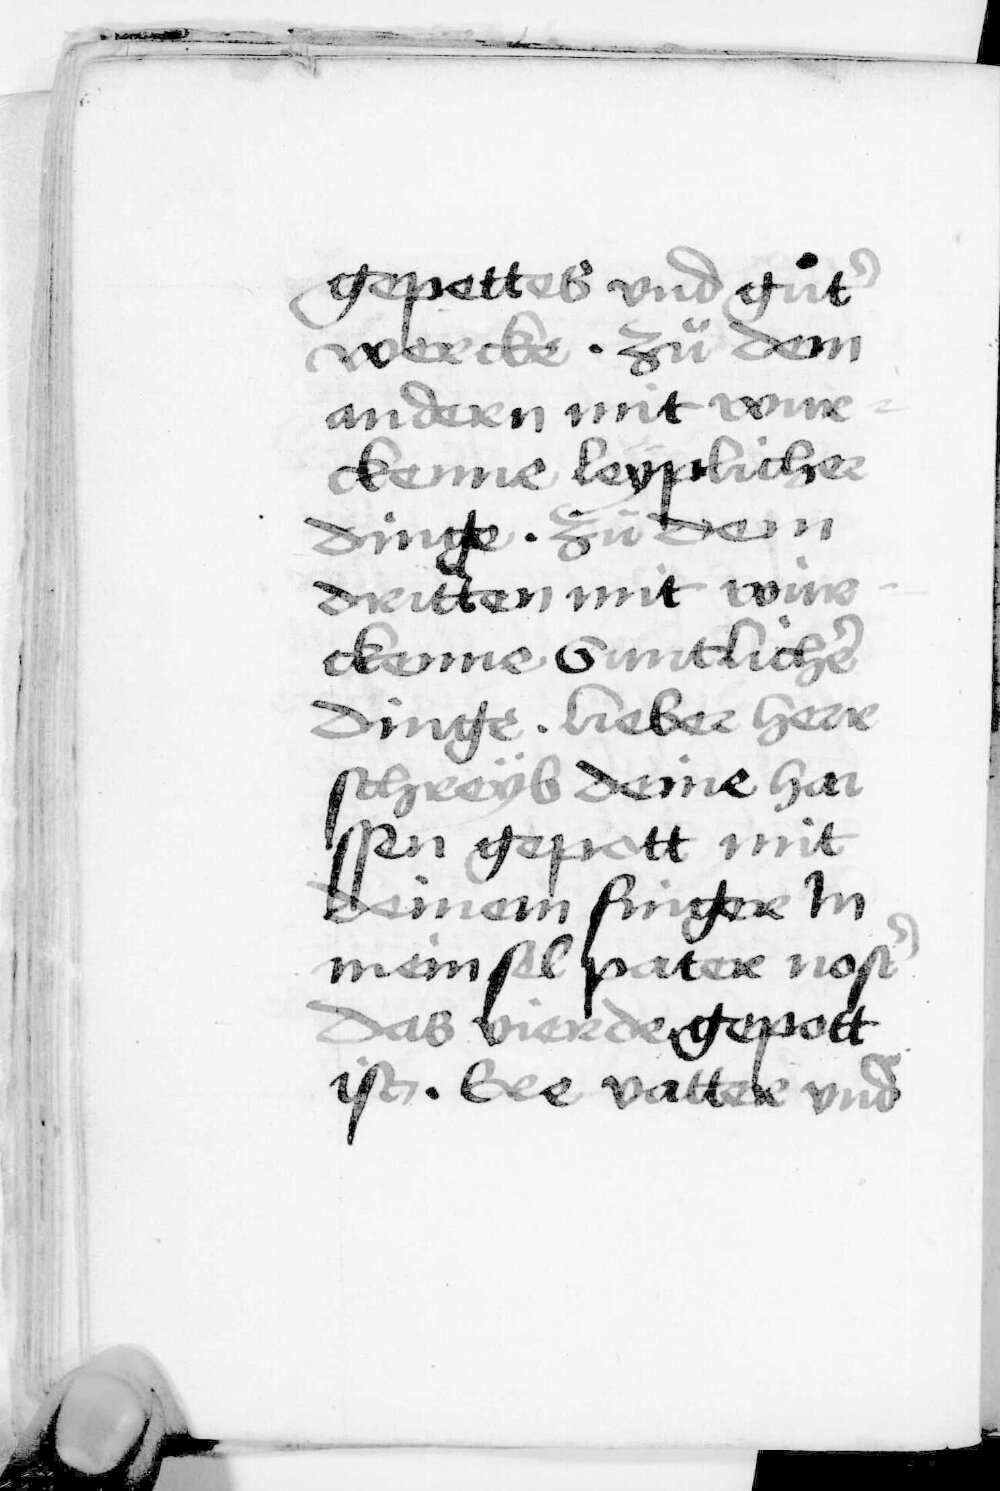 gepettes vnd gůtʾ
wercke . Zü dem
andern mit wur-
ckenne leyplicher
dinge . Zü dem
dritten mit wur-
ckenne Suntlichʾe
dinge . lieber herr
schreÿb deine hai
ssen gepott mit
deinem finger In
mein sel pater nostʾ
das vierde gepott
ist . Ere vatter vnd